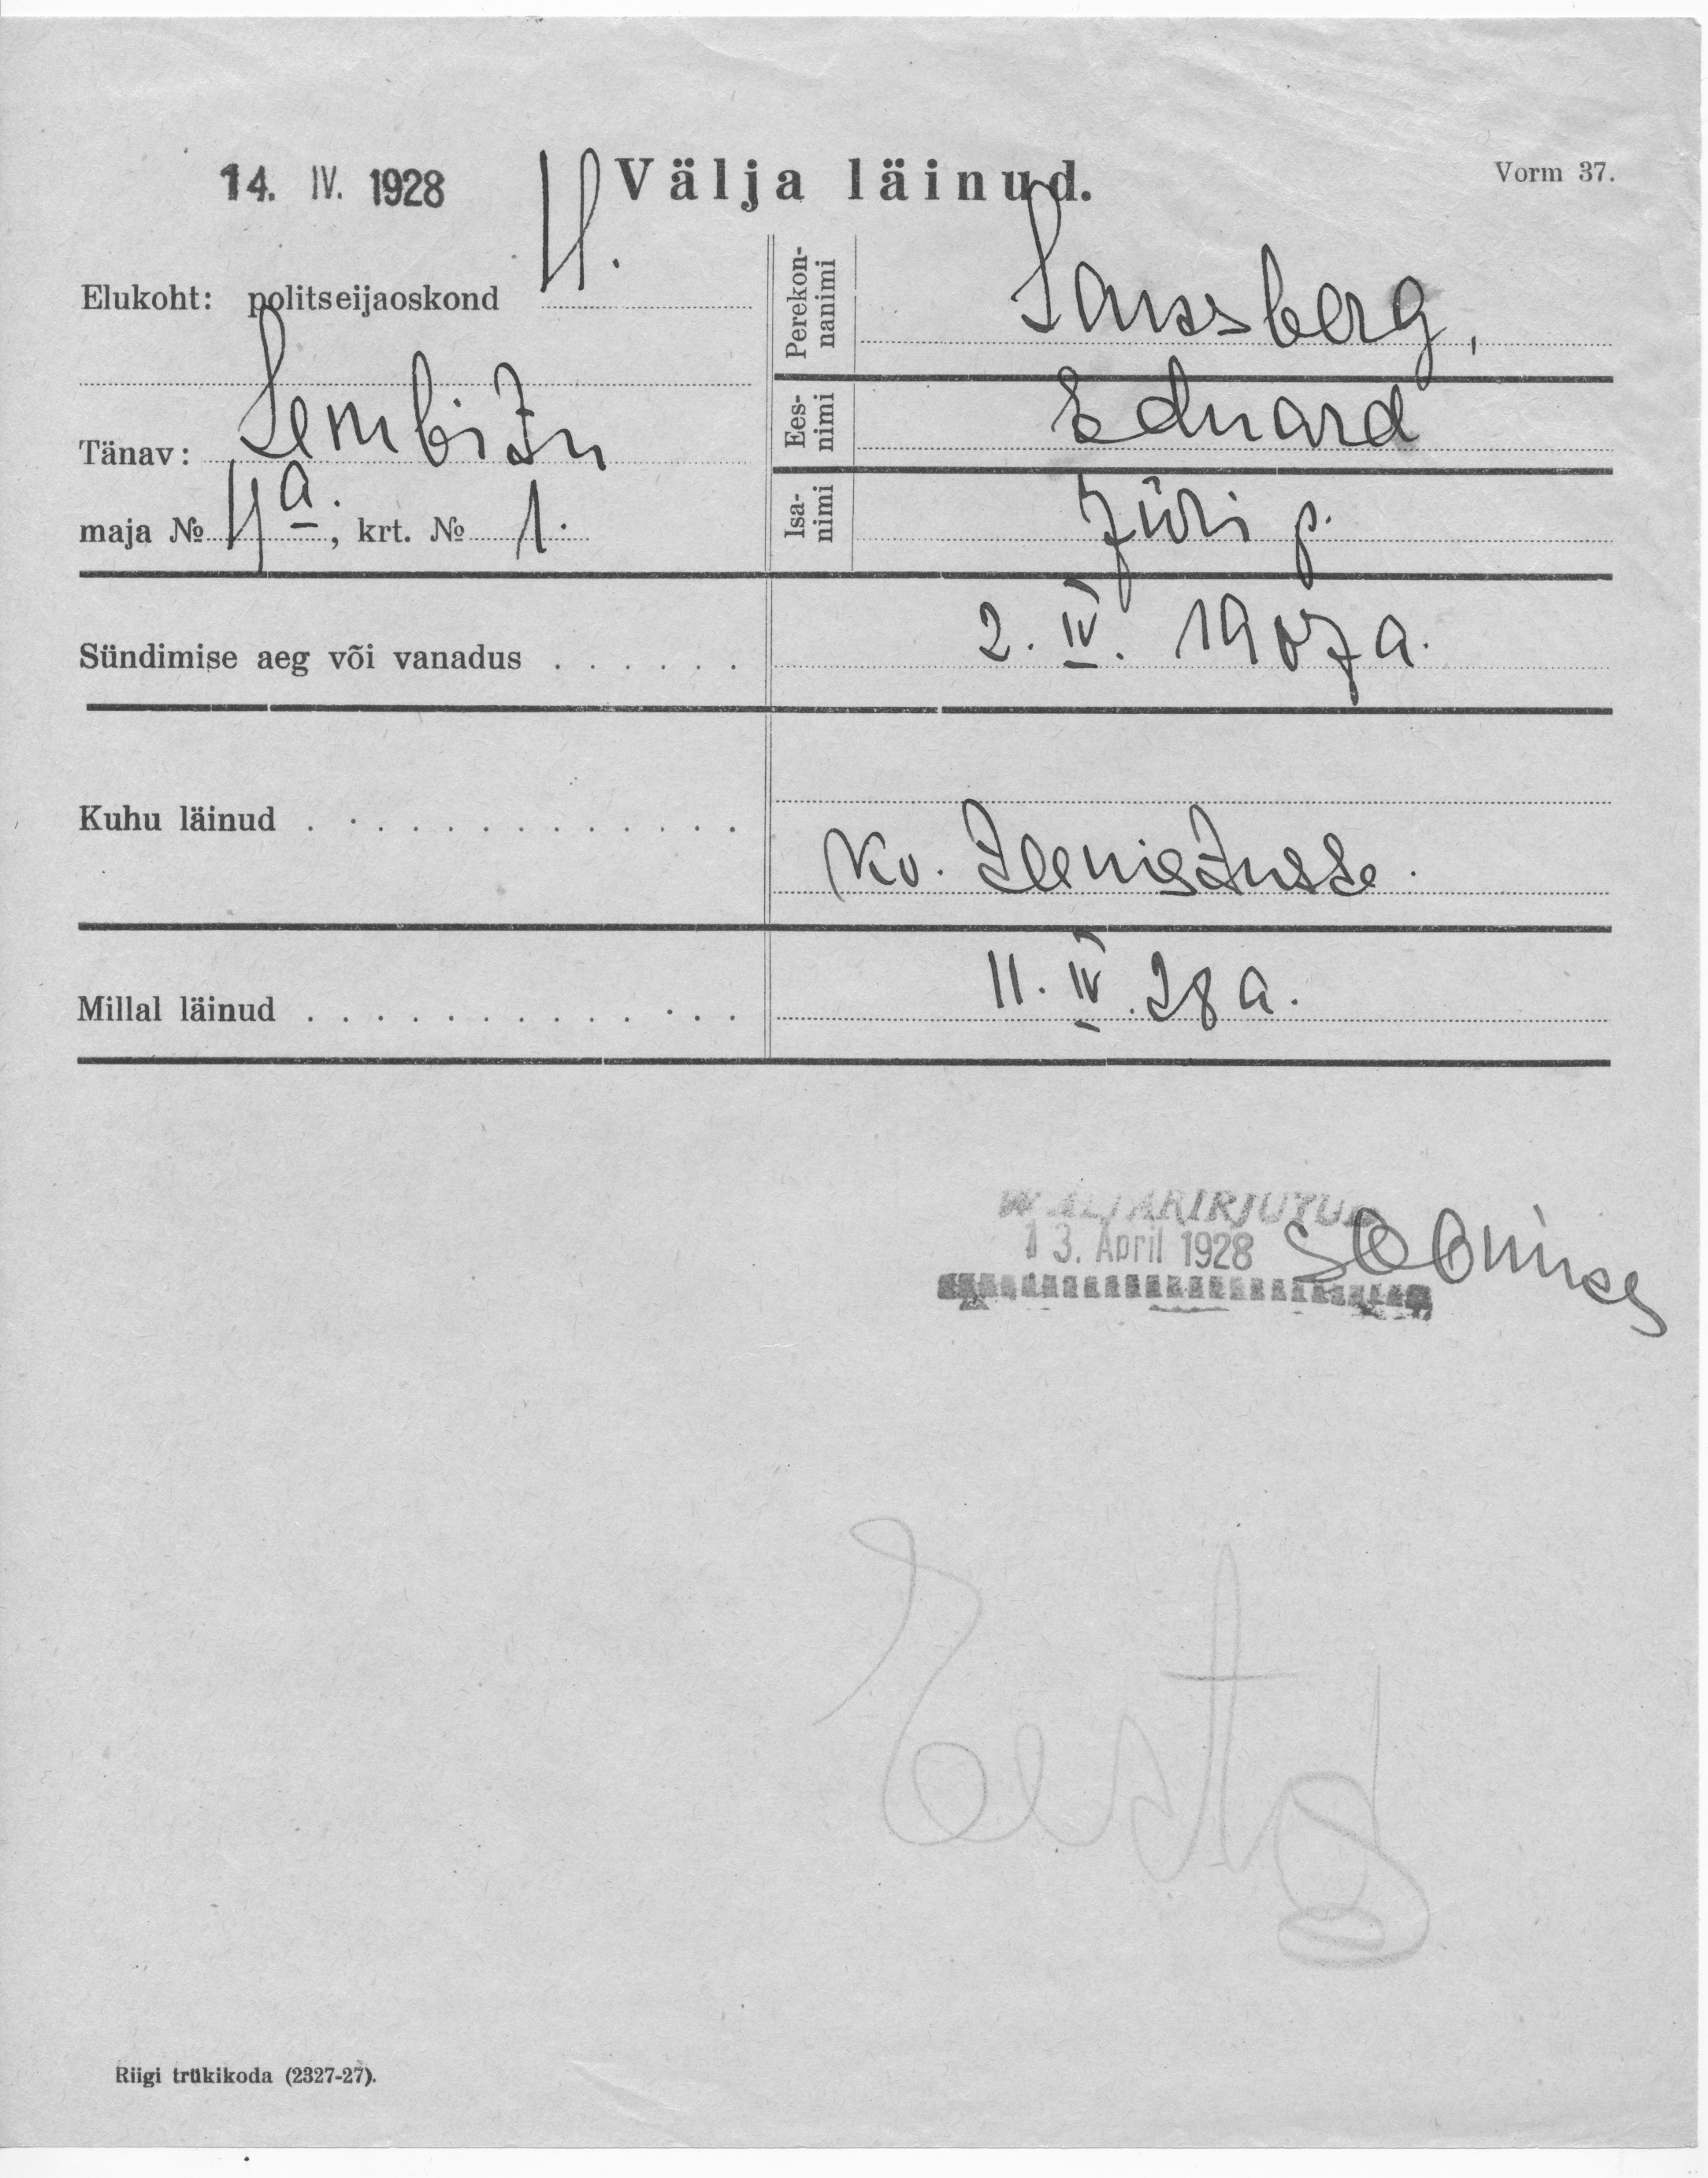 14. IV. 1928
Välja läinud.
Vorm 37.
Elukoht: politseijaoskond 4.
Tänav: Lembitu
maja № 4 a. ; krt. № 1.
Perekonnanimi
Lansberg,
Eesnimi
Eduard
Isanimi
Jüri p.
Sündimise aeg või vanadus . . . . . . 2. IV. 1907 a.
Kuhu läinud . . . . . . . . . . . . . Kv. teenistusse.
Millal läinud . . . . . . . . . . . . . 11. IV. 28 a.
WÄLJAKIRJUTUD
13. April 1928
Riigi trükikoda (2327-27).